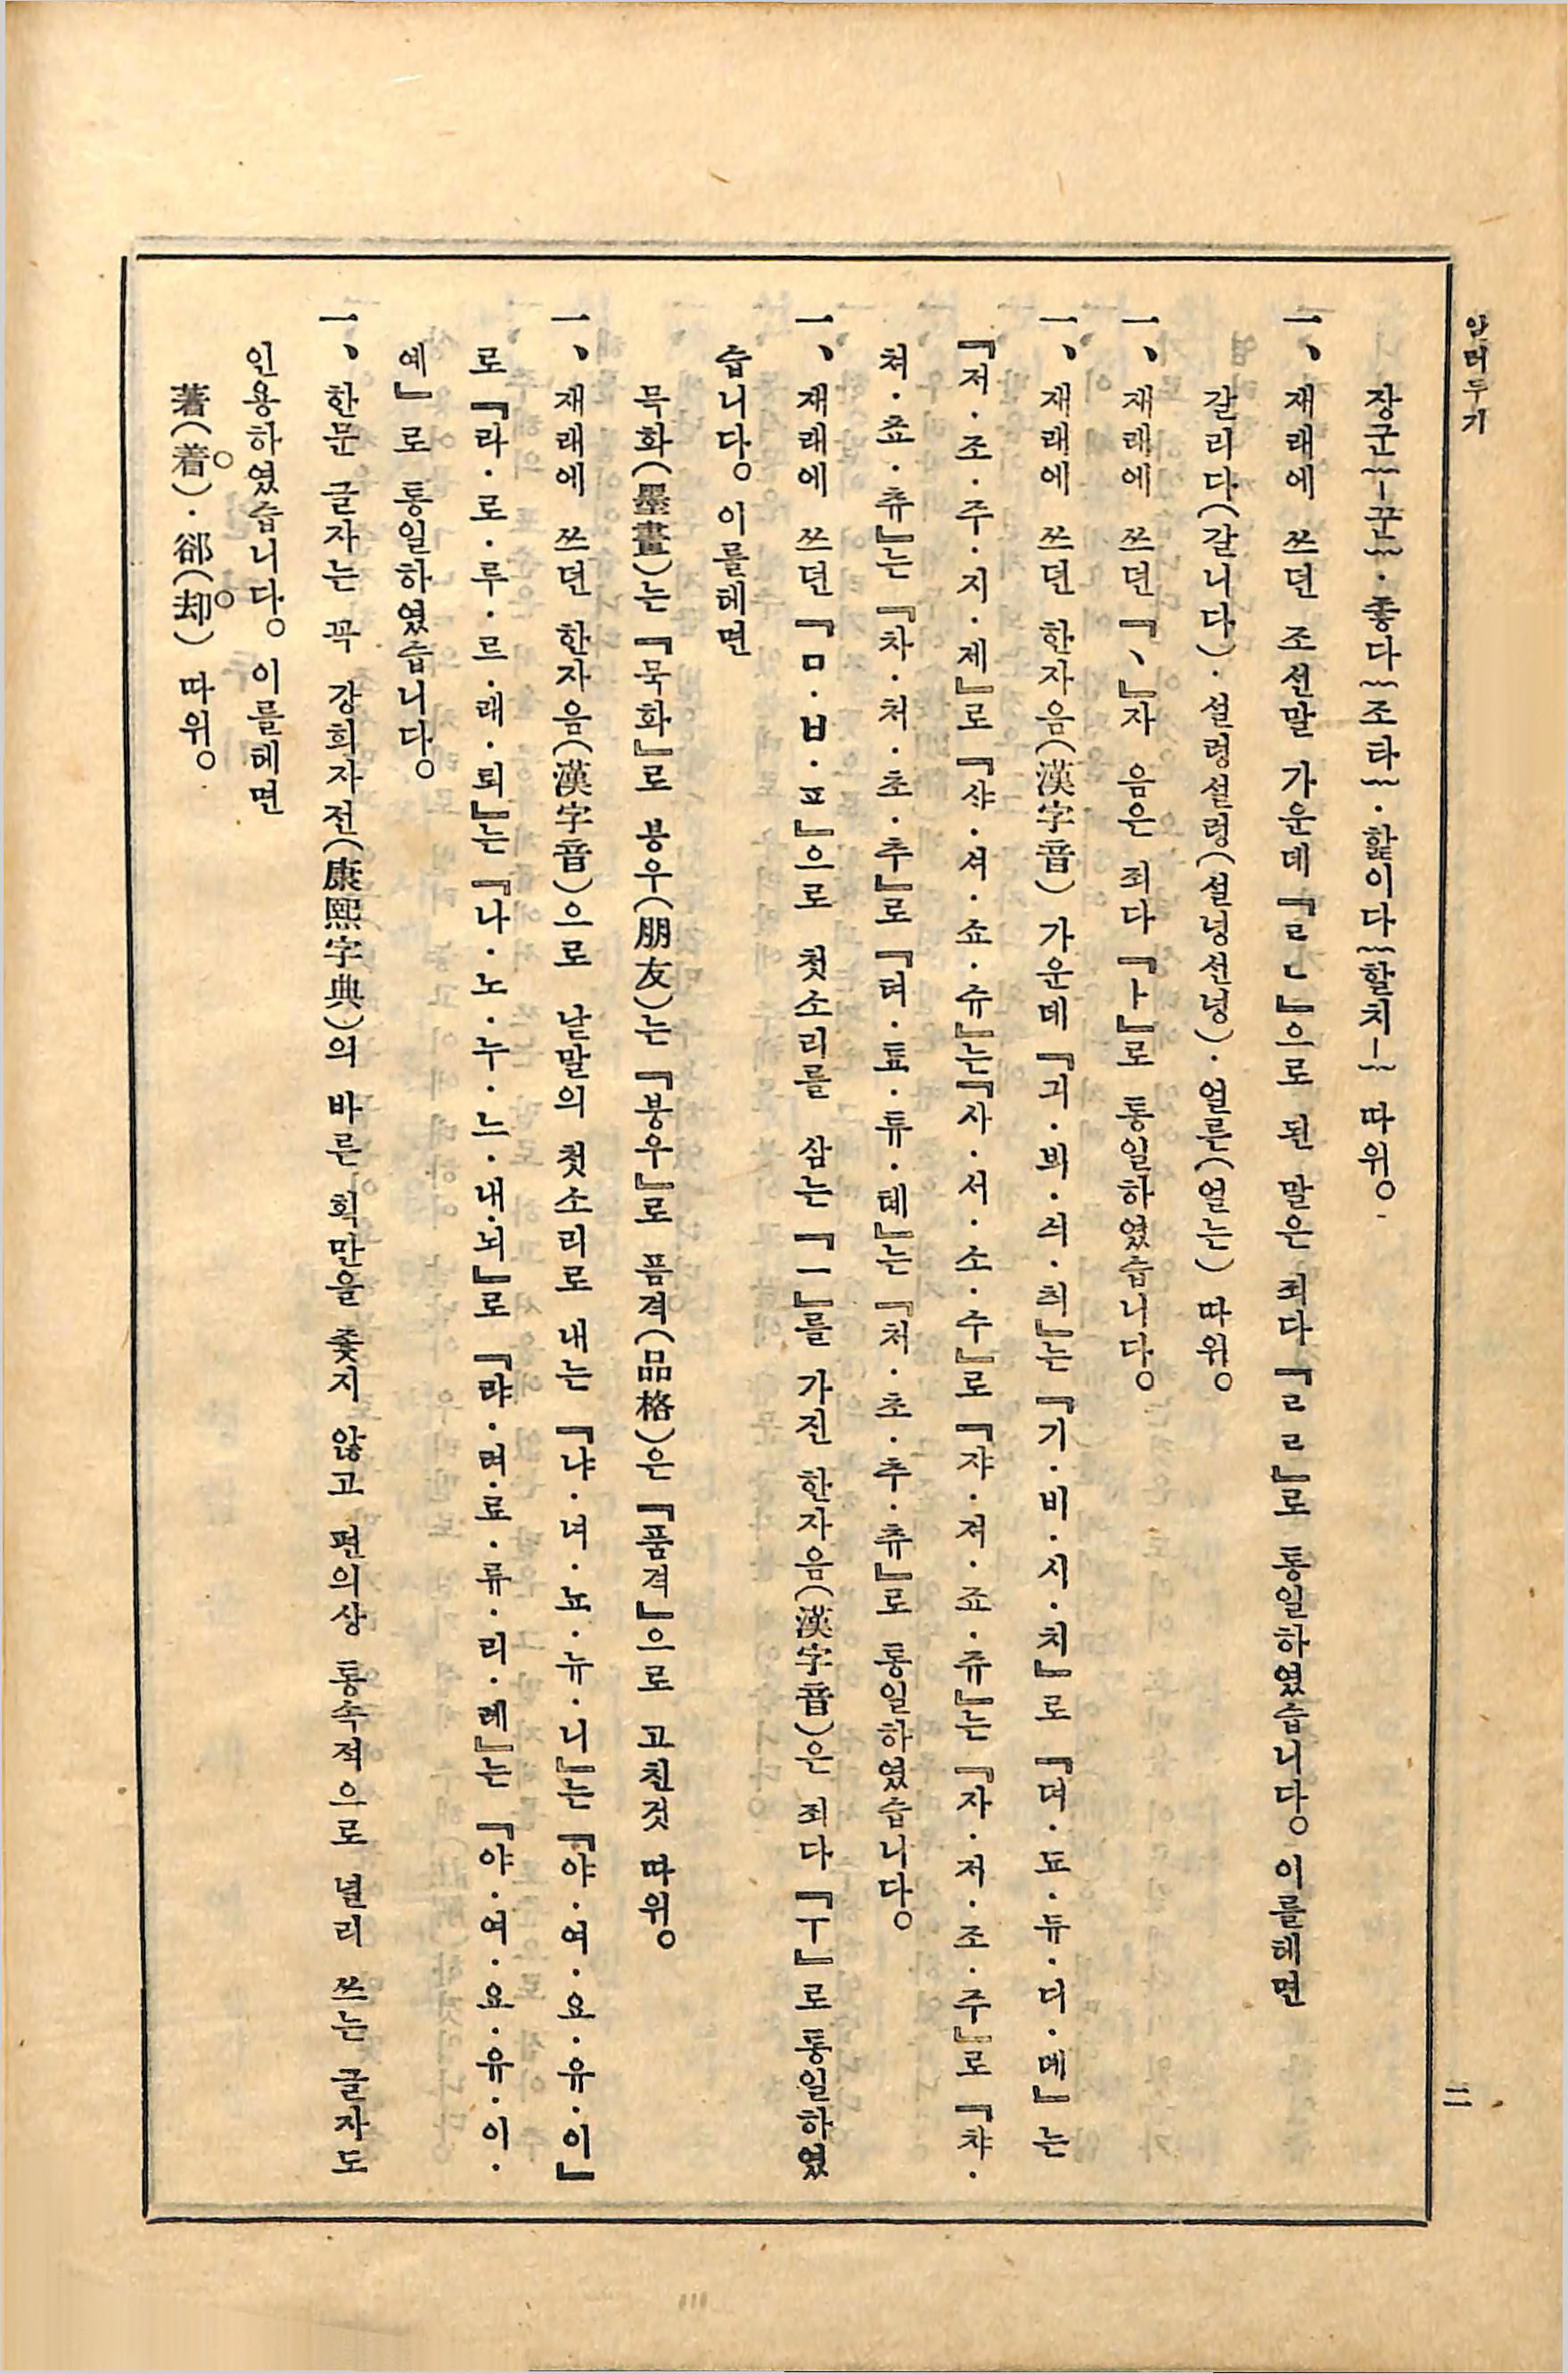 알러두기
二
장군{─꾼}·좋다{조타}·핥이다{할치─} 따위。
一、재래에 쓰던 조선말 가운데『ㄹㄴ』으로 된 말은 죄다『ㄹㄹ』로 통일하였습니다。이를테면
갈리다(갈니다)·설렁설렁(설넝선넝)·얼른(얼는) 따위。
一、재래에 쓰던『ㆍ』자 음은 죄다『ㅏ』로 통일하였습니다。
一、재래에 쓰던 한자음(漢字音) 가운데『긔·븨·싀·츼』는『기·비·시·치』로『뎌·됴·듀·디·뎨』는
『저·조·주·지·제』로『샤·셔·쇼·슈』는『사·서·소·수』로『쟈·져·죠·쥬』는『자·저·조·주』로『챠·
쳐·쵸·츄』는『차·처·초·추』로『텨·툐·튜·톄』는『처·초·추·츄』로 통일하였습니다。
一、재래에 쓰던『ㅁ·ㅂ·ㅍ』으로 첫소리를 삼는『ㅡ』를 가진 한자음(漢字音)은 죄다『ㅜ』로 통일하였
습니다。이를테면
믁화(墨畫)는『묵화』로 븡우(朋友)는『붕우』로 픔격(品格)은『품격』으로 고친것 따위。
一、재래에 쓰던 한자음(漢字音)으로 낱말의 첫소리로 내는『냐·녀·뇨·뉴·니』는『야·여·요·유·이』
로『라·로·루·르·래·뢰』는『나·노·누·느·내·뇌』로『랴·려·료·류·리·례』는『야·여·요·유·이·
예』로 통일하였습니다。
一、한문 글자는 꼭 강희자전(康熙字典)의 바른 획만을 좇지 않고 편의상 통속적으로 널리 쓰는 글자도
인용하였습니다。이를테면
著(着)·郤(却) 따위。